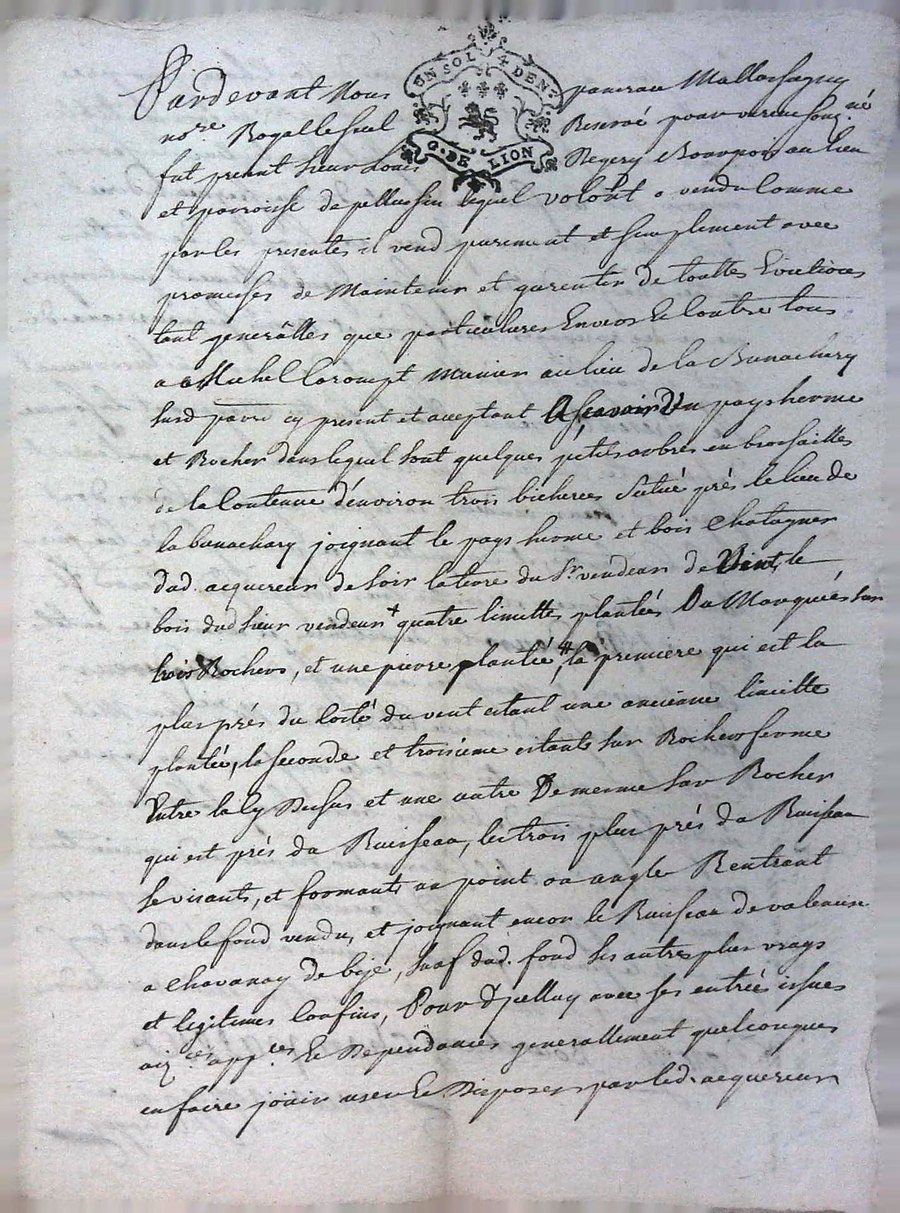 UN SOL 4 DEN.
G. DE LION
Pardevant Nous
nore Royal
Reservé pour
fut present sieur Louis Regery Beaupoix au lieu
et parroisse de pellussin lequel volont a vendu comme
par les presentes il vend purement et simplement avec
promesses de Maintenir et garentir de touttes Evictions
tant generâlles que particulieres Envers Et Contre tous
a Michel Corompt Munier au lieu de la Bunachery
susd parre cy present et acceptant Asçavoir Un pays herme
et Rocher dans lequel sont quelques petits arbres en brossailles
de la Contenue d'environ trois bicherees Situé prés le lieu de
la bunachary joignant le pays herme et bois Chatagner
dud. acquereur de soir la terre du Sr. vendeur de Vent, le
bois dud sieur vendeur + quatre limittes plantées Du Marquées sur
trois Rochers, et une pierre plantée #, la premiere qui est la
plus prés du Coité du vent estant une ancienne limitte
plantée, la seconde et troisieme estants sur Rochers ferme
Entre la Cy Dessus et une autre De mesme sur Rocher
qui est prés du Ruisseau, les trois plus prés du Ruisseau
se visants, et formants un point ou angle Rentrant
dans le fond vendu, et joignant encor le Ruisseau de valeause
a Chavanay de bize, Sauf dud. fond ses autres plus vrays
et legitimes Confins, Pour d'yselluy avec ses entrée issues
aiz.ces app.ces Et Dependances generallement quelconques
en faire joüir user Et Disposer par led. acquereur